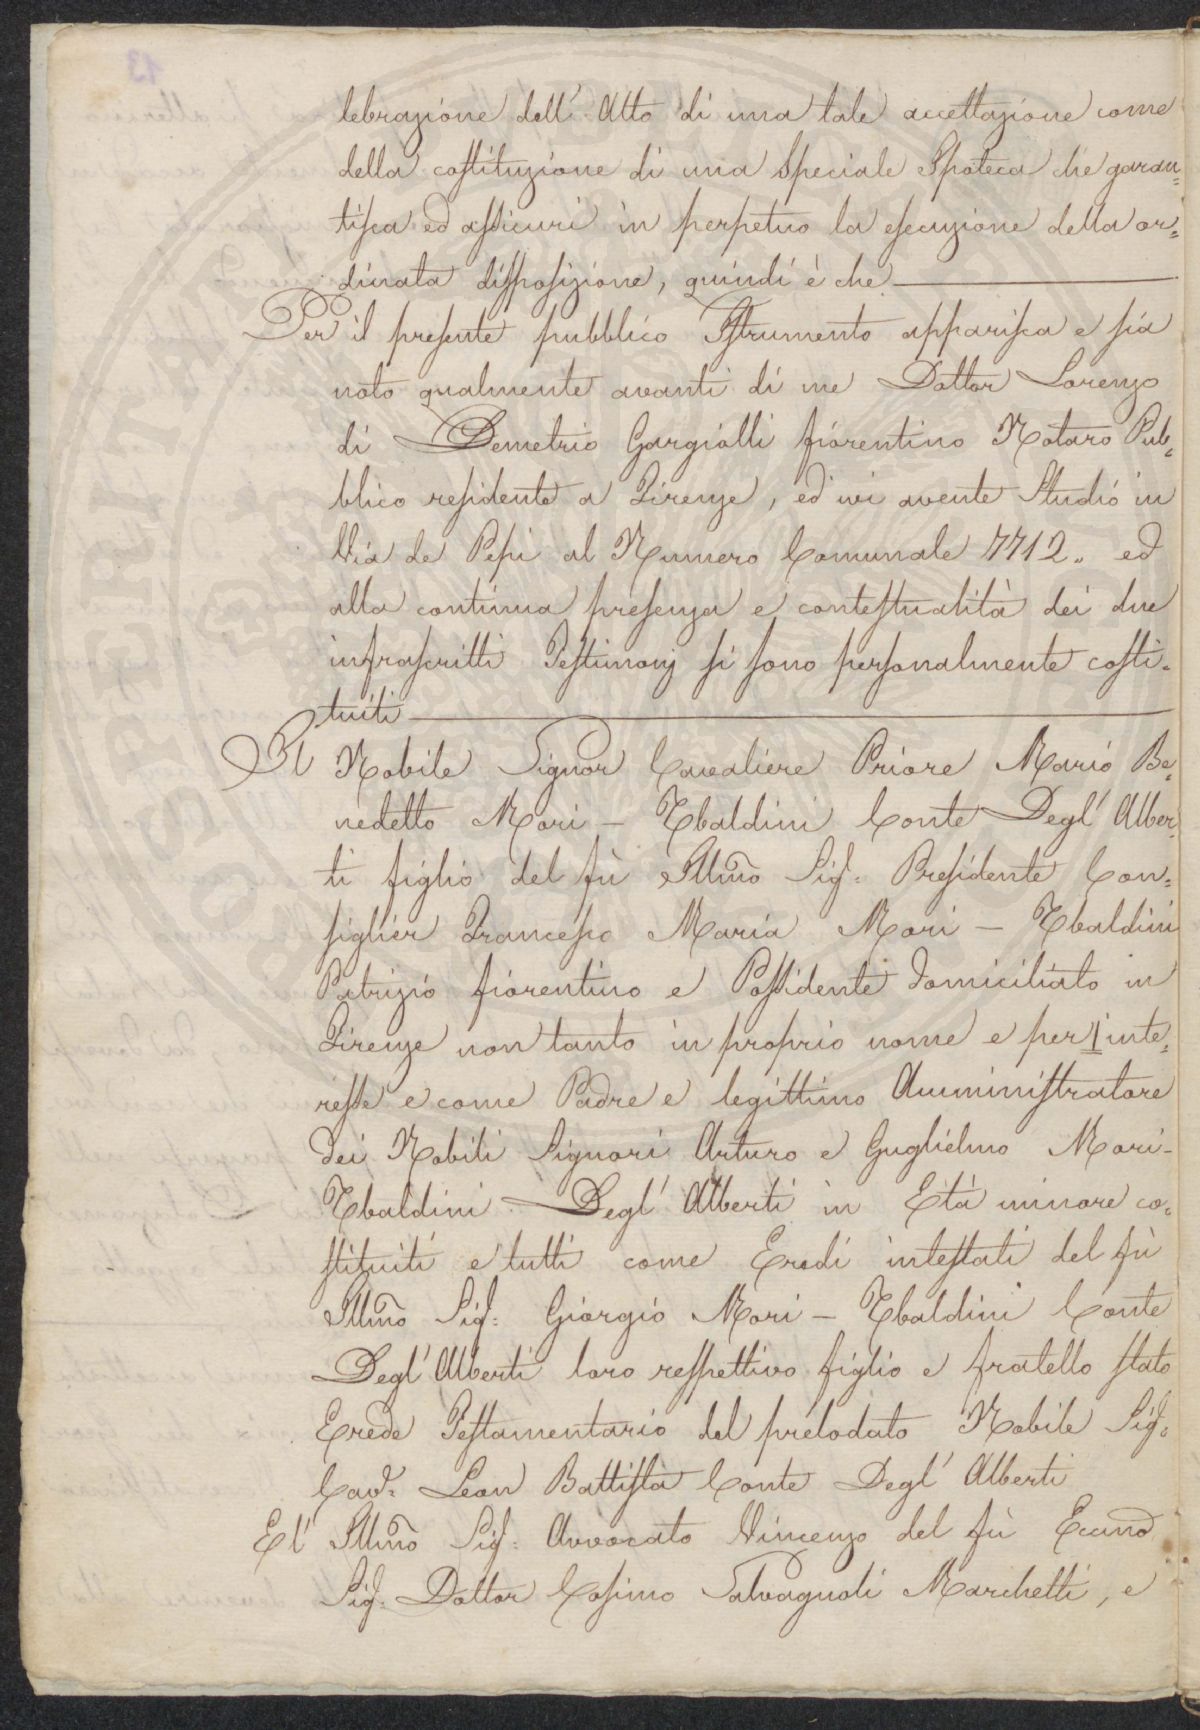 lebrazione dell' Atto di una tale accettazione come
della costituzione di una speciale Ipoteca che garan=
tisca ed assicuri in perpetuo la esecuzione della or=
dinata disposizione, quindi è che
Per il presente pubblico Istrumento apparisca e sia
noto qualmente avanti di me Dottor Lorenzo
di Demetrio Gargiolli fiorentino Notaro Pub=
blico residente a Firenze, ed ivi avente Studio in
Via de Pepi al Numero Comunale 7712. ed
alla continua presenza e contestualità dei due
infrascritti Testimonj si sono personalmente costi=
tuiti
Il Nobile Signor Cavaliere Priore Mario Be=
nedetto Mori - Ubaldini Conte Degl' Alber=
ti figlio del fù Illmo Sig: Presidente Con=
siglier Francesco Maria Mori - Ubaldini
Patrizio fiorentino e Possidente domiciliato in
Firenze non tanto in proprio nome e per inte=
resse e come Padre e legittimo Amministratore
dei Nobili Signori Arturo e Guglielmo Mori-
Ubaldini Degl' Alberti in Età minore co=
stituiti e tutti come Eredi intestati del fù
Illmo Sig: Giorgio Mori - Ubaldini Conte
Degl' Alberti loro respettivo figlio e fratello stato
Erede Testamentario del prelodato Nobile Sig:
Cav: Leon Battista Conte Degl' Alberti
E l' Illmo Sig: Avvocato Vincenzo del fù Eccmo
Sig: Dottor Cosimo Salvagnoli Marchetti, e
13